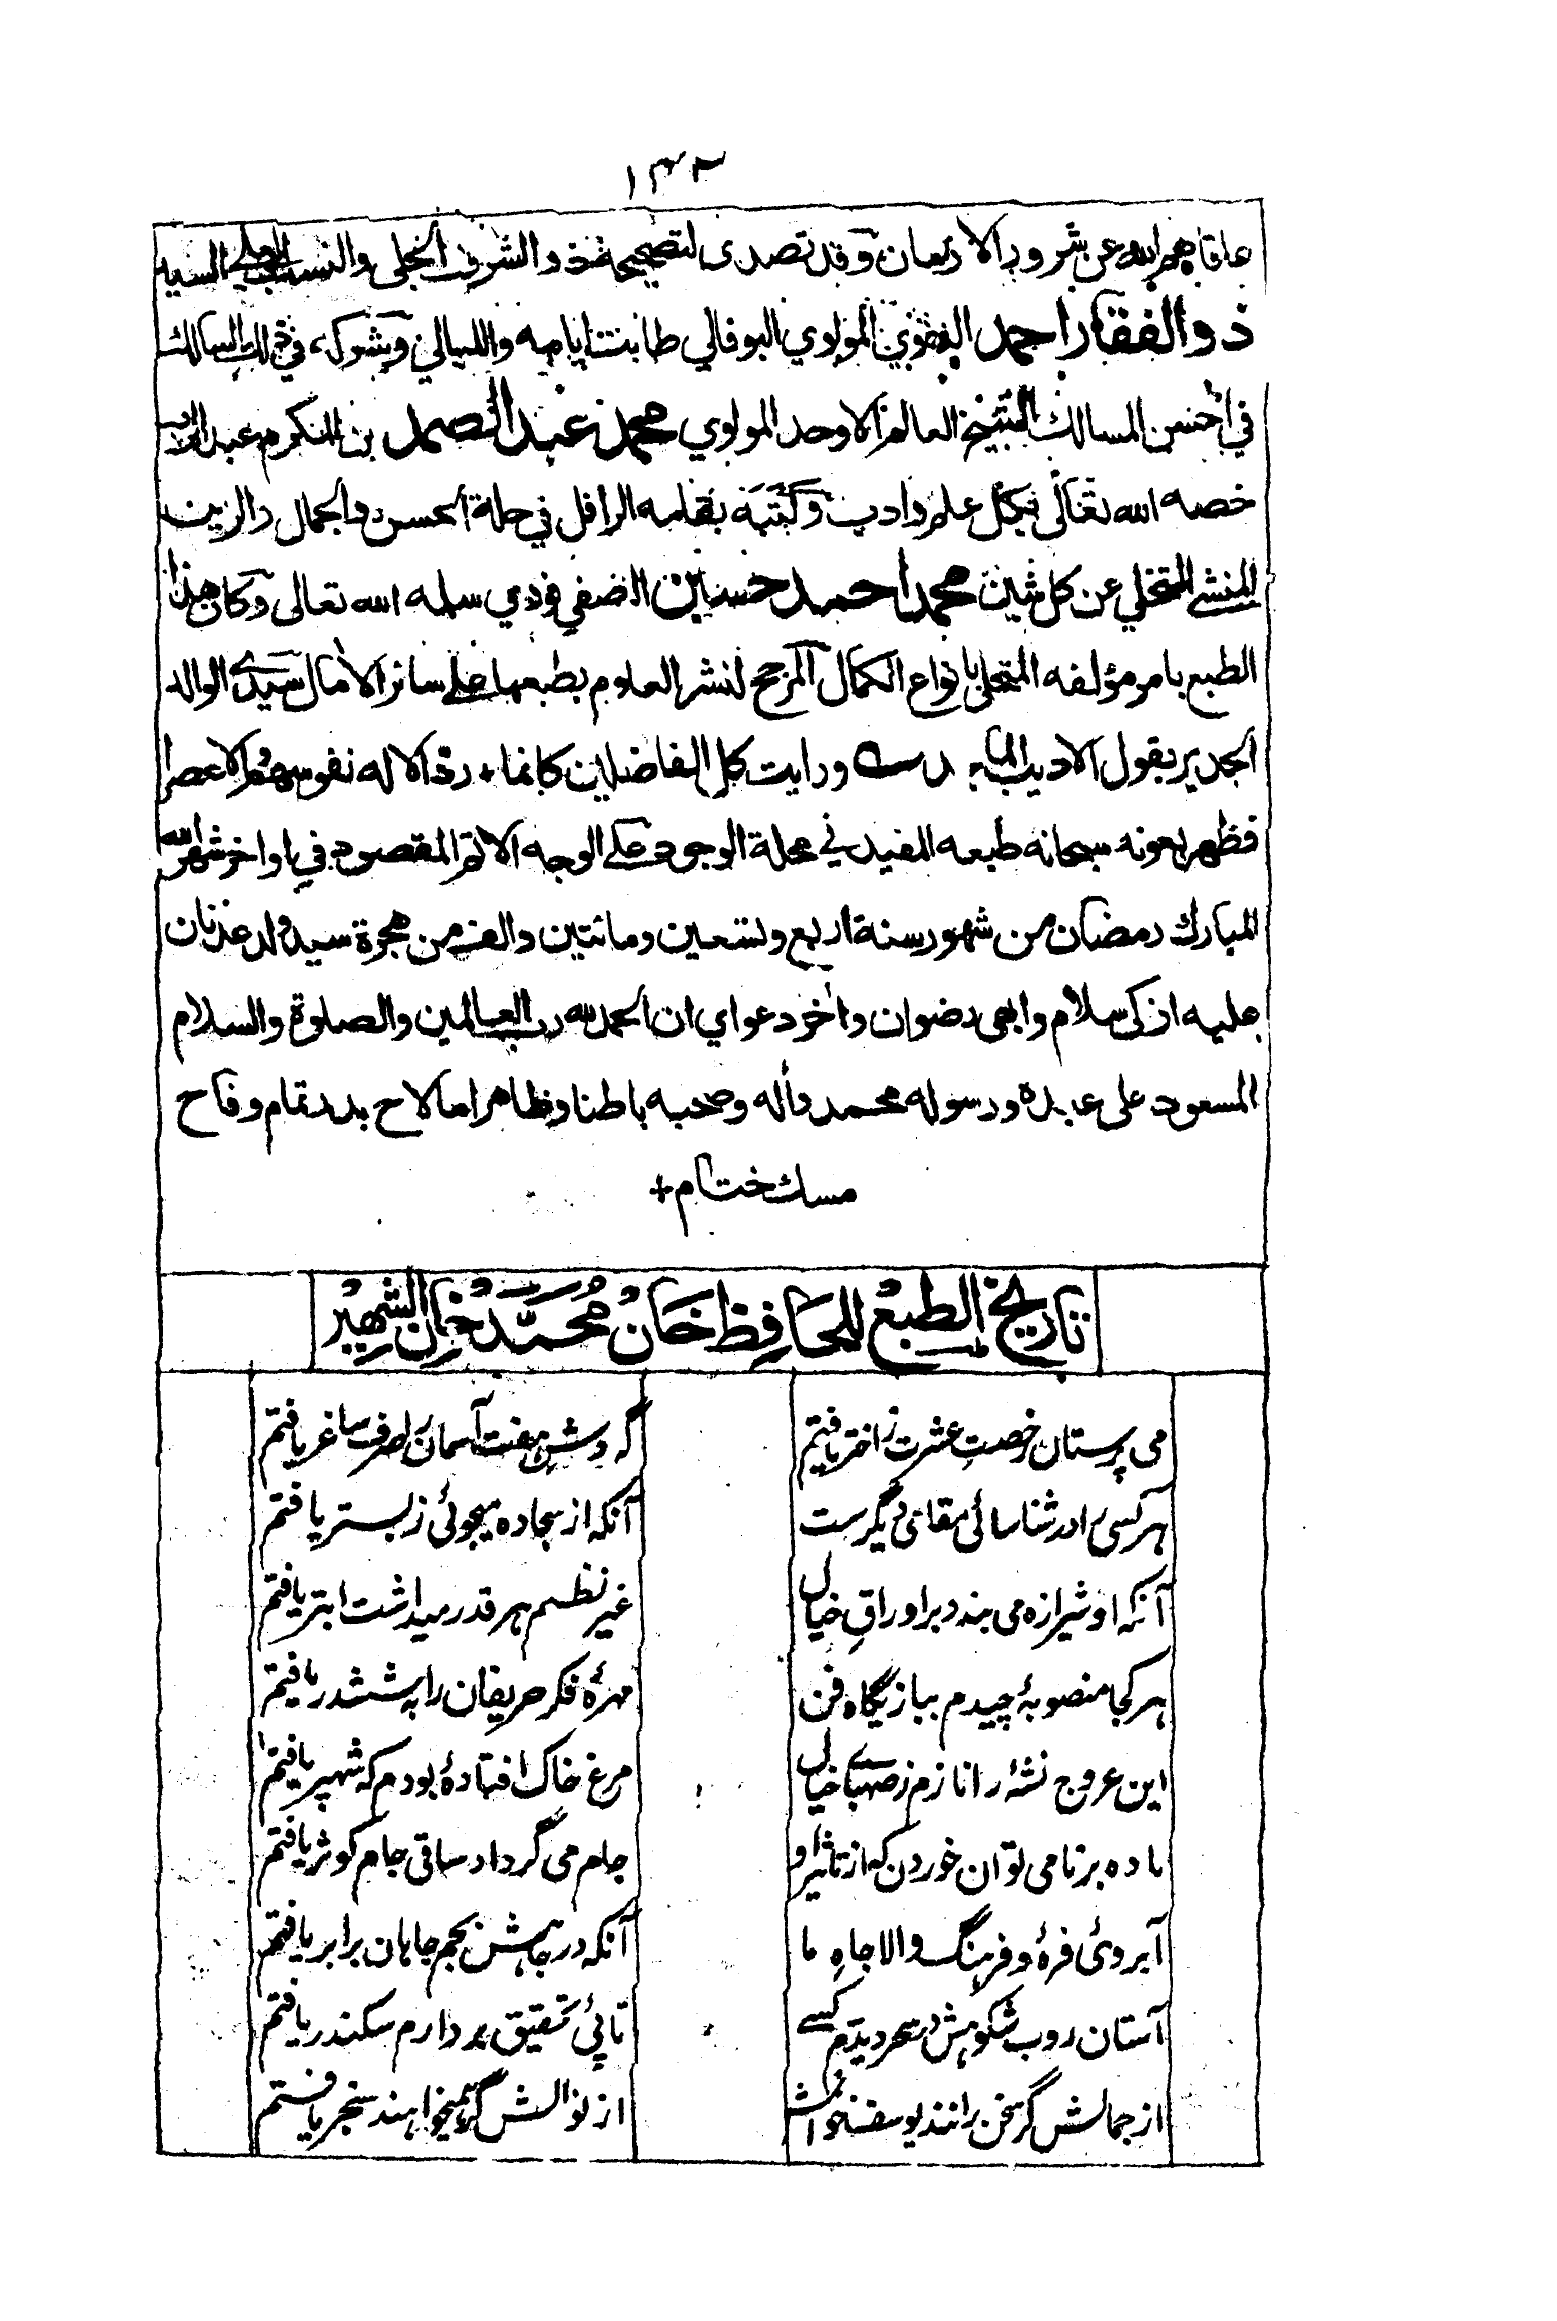 ١٣٢
عافاهم الله عن شرور الازمان وقد تصدى لتصحيحه ذو الشرف الجلي والنسب العلي السيد
ذو الفقار احمد النقوي المولوي البوفالي طابت ايامه والليالي وشركه في ذلك السالك
في احسن المسالك الشيخ العالم الاوحد المولوي محمد عبد الصمد بن المكرم عبد الرب
خصه الله تعالى بكل علم وادب وكتبه بقلمه الرافل في حلة الحسن والجمال والزين
المنشي المتخلي عن كل شين محمد احمد حسين الصفي فودي سلمه الله تعالى وكان هذا
الطبع بامر مؤلفه المتحلي بانواع الكمال المرجح لنشر العلوم بطبعها على سائر الامال سيدي الوالد
الجدير بقول الاديب ورايت كل الفاضلين كانما + رد الاله نفوسهم والاعصرا
فظهر بعونه سبحانه طبعه المفيد في محلة الوجود على الوجه الاتم المقصود في اواخر شهر الله
المبارك رمضان من شهور سنة اربع وتسعين ومائتين والف من هجرة سيد ولد عدنان
عليه ازكى سلام وابهى رضوان واخر دعواي ان الحمد لله رب العالمين والصلوة والسلام
المسعود على عبده ورسوله محمد واله وصحبه باطنا وظاهرا ما لاح بدر تمام وفاح
مسك ختام +
تاريخ الطبع للحافظ خان محمد خان الشهير
می پرستان رخصت عشرت ز اختر یافتم
که دشن هفت آسمان را صرف ساغر یافتم
هر کسی را در شناسائی مقامی دیگرست
آنکه از سجاده میجوئی ز بستر یافتم
آنکه او شیرازه می بندد بر اوراقِ خیال
غیر نظم هر قدر میداشت ابتر یافتم
هر کجا منصوبهٔ چیدم ببازیگاه فن
مهرهٔ فکر حریفان را به ششدر یافتم
این عروج نشهٔ را نازم ز صهبای خیال
مرغ خاک افتادهٔ بودم که شهپر یافتم
باده بر نامی توان خوردن که از تاثیر او
جام می گرداد ساقی جام کوثر یافتم
آبروئ فرهٔ و فرهنگ والا جاهِ ما
آنکه در جاهش نجم جاهان برابر یافتم
آستان روب شکوهش در سحر دیدم کسے
تا پئ تحقیق بردارم سکندر یافتم
از جمالش گر سخن رانند یوسف خوانمش
از نوالش گر نمیخواهند سنجر یافتم